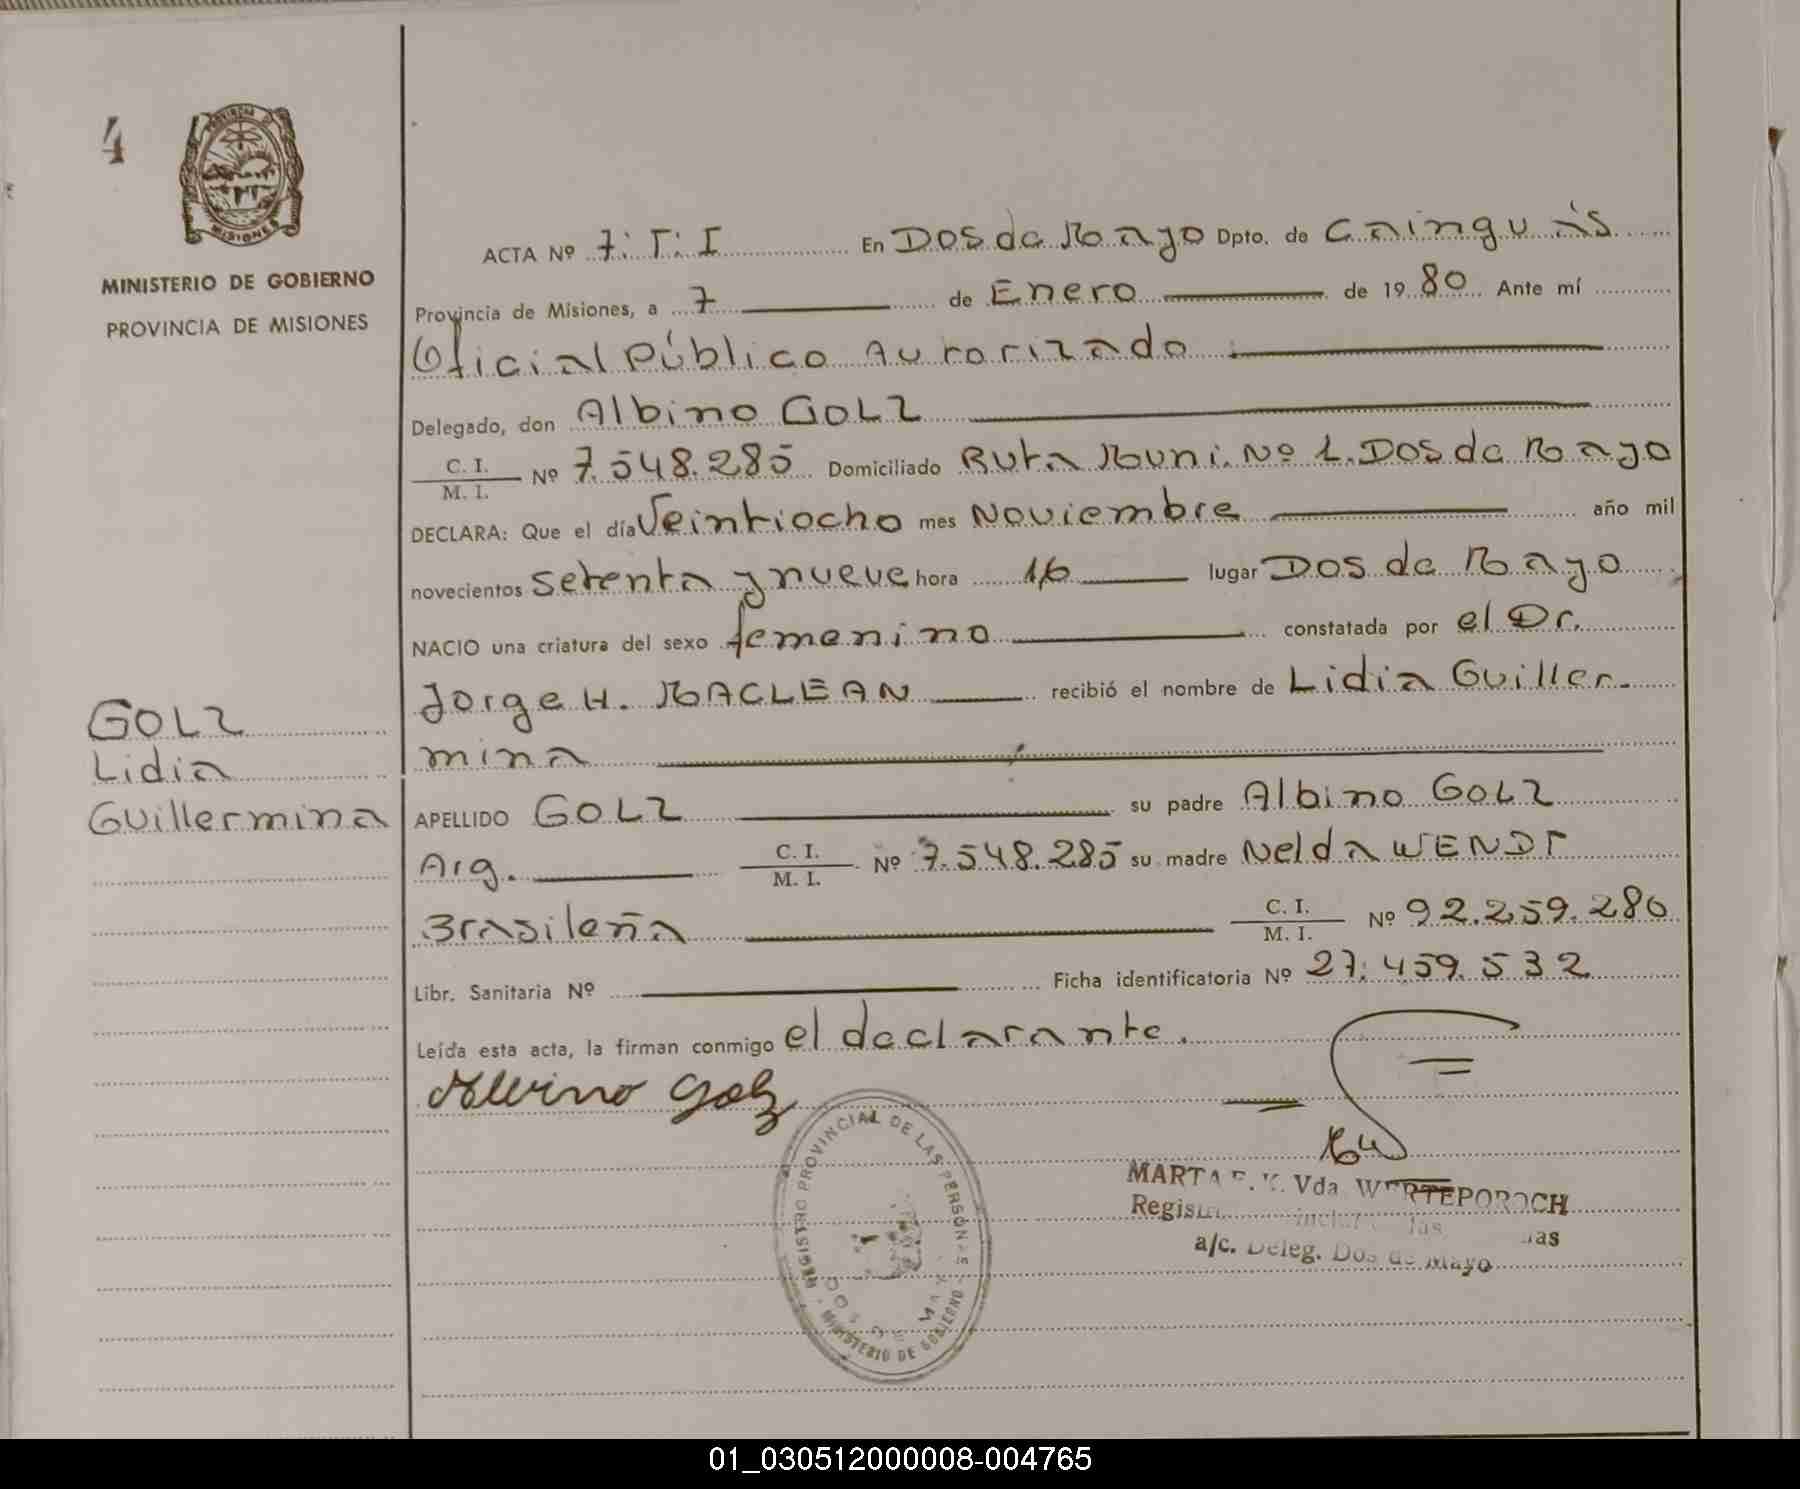 4
PROVINCIA DE
MISIONES
MINISTERIO DE GOBIERNO
PROVINCIA DE MISIONES
GOLZ
Lidia
Guillermina
ACTA Nº 7: T: I En Dos de Mayo Dpto. de Cainguás
Provincia de Misiones, a 7 de Enero de 19 80 Ante mí
Oficial Público Autorizado
Delegado, don Albino GOLZ
C. I.
M. I. Nº 7.548.285 Domiciliado Ruta Muni. Nº 1. Dos de Mayo
DECLARA: Que el día Veintiocho mes Noviembre año mil
novecientos setenta y nueve hora 16 lugar Dos de Mayo
NACIO una criatura del sexo femenino constatada por el Dr.
Jorge H. MACLEAN recibió el nombre de Lidia Guiller-
mina
APELLIDO GOLZ su padre Albino GOLZ
Arg. C. I.
M. I. Nº 7.548.285 su madre Nelda WENDT
Brasileña C. I.
M. I. Nº 92.259.280
Libr. Sanitaria Nº Ficha identificatoria Nº 27.459.532
Leída esta acta, la firman conmigo el declarante.
Alvino Golz
REGISTRO PROVINCIAL DE LAS PERSONAS
MINISTERIO DE GOBIERNO
MARTA Vda. WERTEPOROCH
a/c. Deleg. Dos de Mayo
01_030512000008-004765